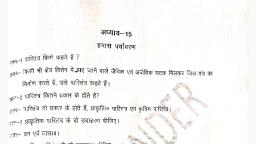 अध्याय-15
हमारा पर्यावरण
प्रश्न-1 पारितंत्र किसे कहते हैं ?
उत्तर- किसी भी क्षेत्र विशेष में पाए जाने वाले जैविक एवं अजैविक घटक मिलकर जिस तंत्र का
निर्माण करते हैं, उसे पारितंत्र कहते हैं।
प्रश्न-2 पारितंत्र कितने प्रकार के होते हैं?
उत्तर- पारितंत्र दो प्रकार के होते हैं, प्राकृतिक पारितंत्र एवं कृत्रिम पारितंत्र।
प्रश्न-3 प्राकृतिक पारितंत्र के दो उदाहरण दीजिए।
उत्तर- वन एवं तालाब।